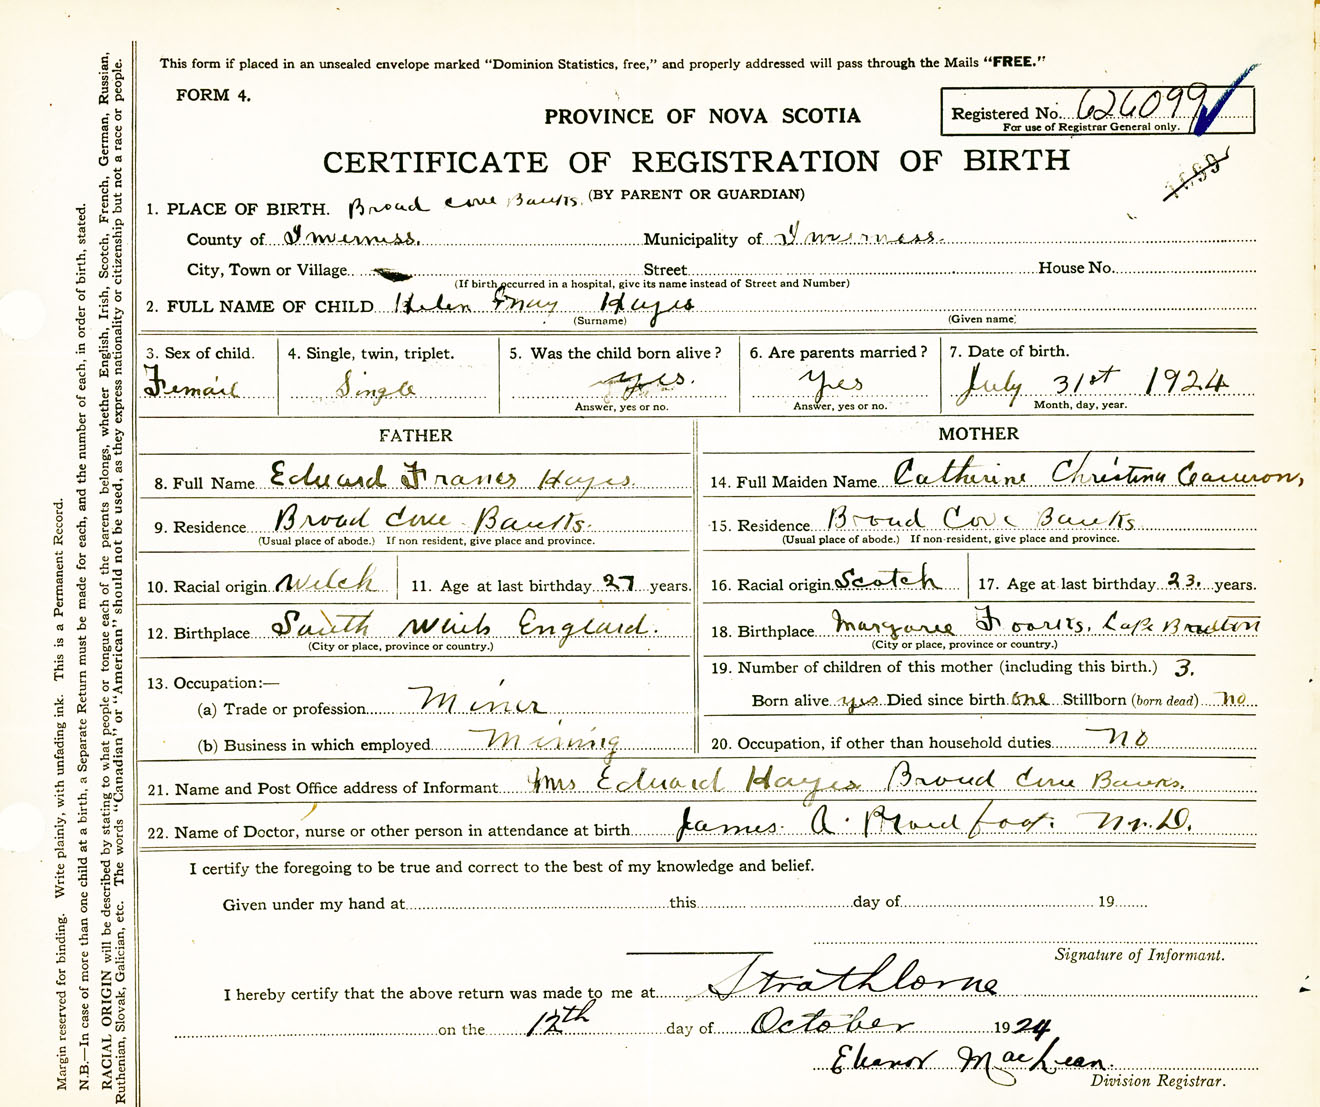 This form if placed in an unsealed envelope marked "Dominion Statistics, free," and properly addressed will pass through the Mails "FREE."
FORM 4.
PROVINCE OF NOVA SCOTIA
Registered No. 626099
For use of Registrar General only.
CERTIFICATE OF REGISTRATION OF BIRTH
(BY PARENT OR GUARDIAN)
1. PLACE OF BIRTH. Broad Cove Banks.
County of Inverness. Municipality of Inverness.
City, Town or Village Street House No.
(If birth occurred in a hospital, give its name instead of Street and Number)
2. FULL NAME OF CHILD Helen May Hayes
(Surname) (Given name)
3. Sex of child. 4. Single, twin, triplet. 5. Was the child born alive? 6. Are parents married? 7. Date of birth.
Femail Single yes. Yes July 31st 1924
Answer, yes or no. Answer, yes or no. Month, day, year.
FATHER MOTHER
8. Full Name Eduard Frances Hayes. 14. Full Maiden Name Catherine Christina Cameron,
9. Residence Broad Cove Banks. 15. Residence Broad Cove Banks
(Usual place of abode.) If non resident, give place and province. (Usual place of abode.) If non-resident, give place and province.
10. Racial origin Welch 11. Age at last birthday 27 years. 16. Racial origin Scotch 17. Age at last birthday 23. years.
12. Birthplace South England. 18. Birthplace Margaree Cape
(City or place, province or country.) (City or place, province or country.)
19. Number of children of this mother (including this birth.) 3.
13. Occupation:—
(a) Trade or profession Miner Born alive yes Died since birth one Stillborn (born dead) no
(b) Business in which employed Mining 20. Occupation, if other than household duties no
21. Name and Post Office address of Informant Mrs Eduard Hayes Broad Cove Banks.
22. Name of Doctor, nurse or other person in attendance at birth James. A. Proudfoot. M.D.
I certify the foregoing to be true and correct to the best of my knowledge and belief.
Given under my hand at this day of 19
Signature of Informant.
I hereby certify that the above return was made to me at Strathlorne
on the 12th day of October 1924
Eleanor MacLean.
Division Registrar.
Margin reserved for binding. Write plainly, with unfading ink. This is a Permanent Record.
N.B.—In case of more than one child at a birth, a Separate Return must be made for each, and the number of each, in order of birth, stated.
RACIAL ORIGIN will be described by stating to what people or tongue each of the parents belongs, whether English, Irish, Scotch, French, German, Russian,
Ruthenian, Slovak, Galician, etc. The words "Canadian" or "American" should not be used, as they express nationality or citizenship but not a race or people.